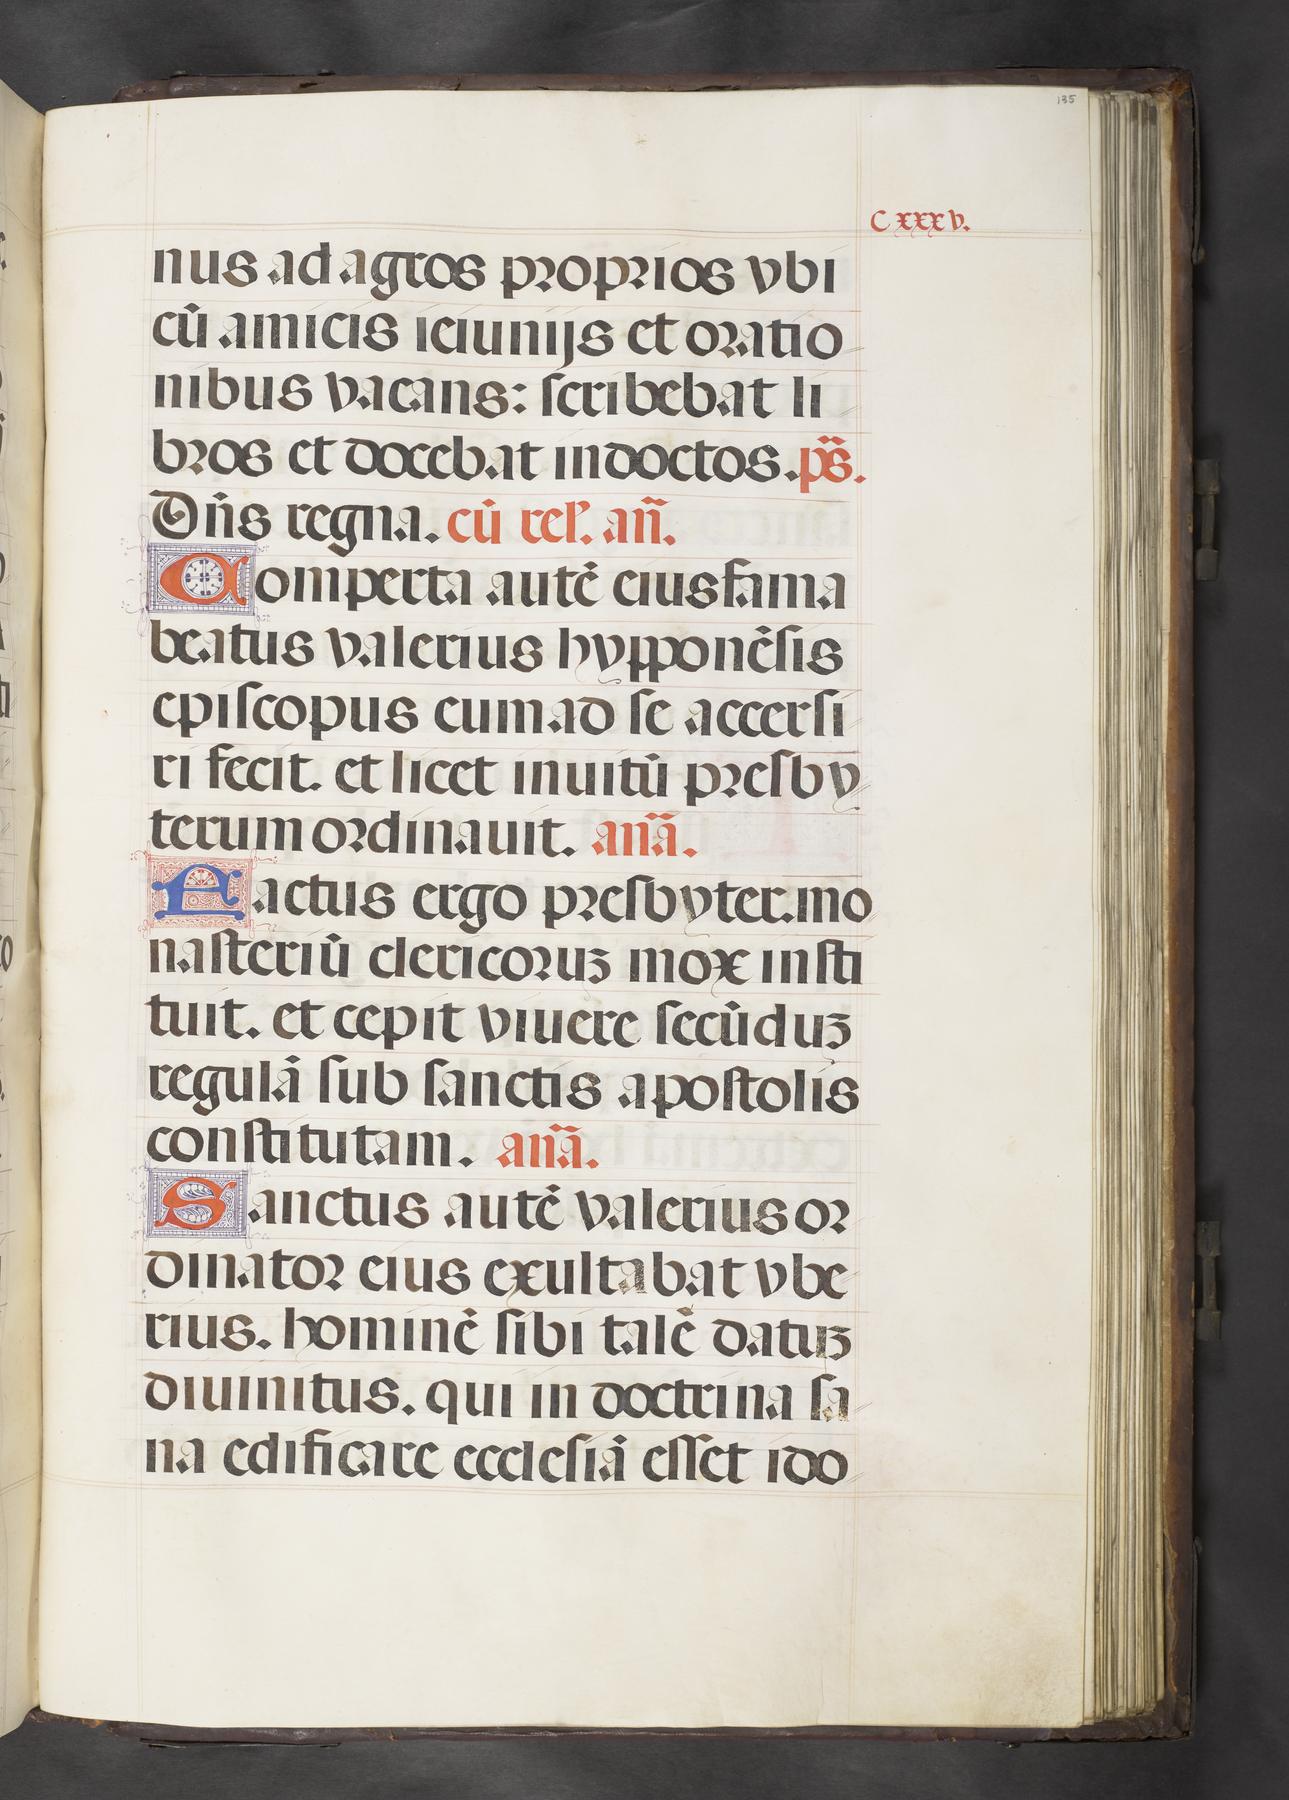 135
C xxx v.
nus ad agros proprios vbi
cū amicis ieiunijs et oratio
nibus vacans: scribebat li
bros et docebat indoctos. ps̄.
Dn̄s regna. cū rel'. an̄.
Comperta autē eius fama
beatus valerius hypponēsis
episcopus eum ad se accersi
ri fecit. et licet inuitū presby
terum ordinauit. anā.
Factus ergo presbyter. mo
nasteriū clericoruꝫ mox insti
tuit. et cepit viuere secūduꝫ
regulā sub sanctis apostolis
constitutam. anā.
Sanctus autē valerius or
dinator eius exultabat vbe
rius. hominē sibi talē datuꝫ
diuinitus. qui in doctrina sa
na edificare ecclesiā esset ido